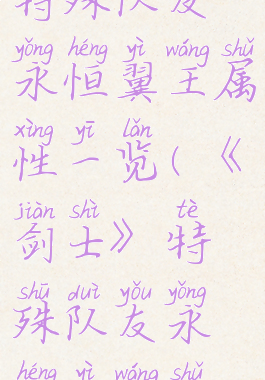 特殊队友
yǒng héng yì wáng shǔ
永恒翼王属
xìng yī lǎn
性一览(《
jiàn shì tè
剑士》特
shū duì yǒu yǒng
殊队友永
héng yì wáng shǔ